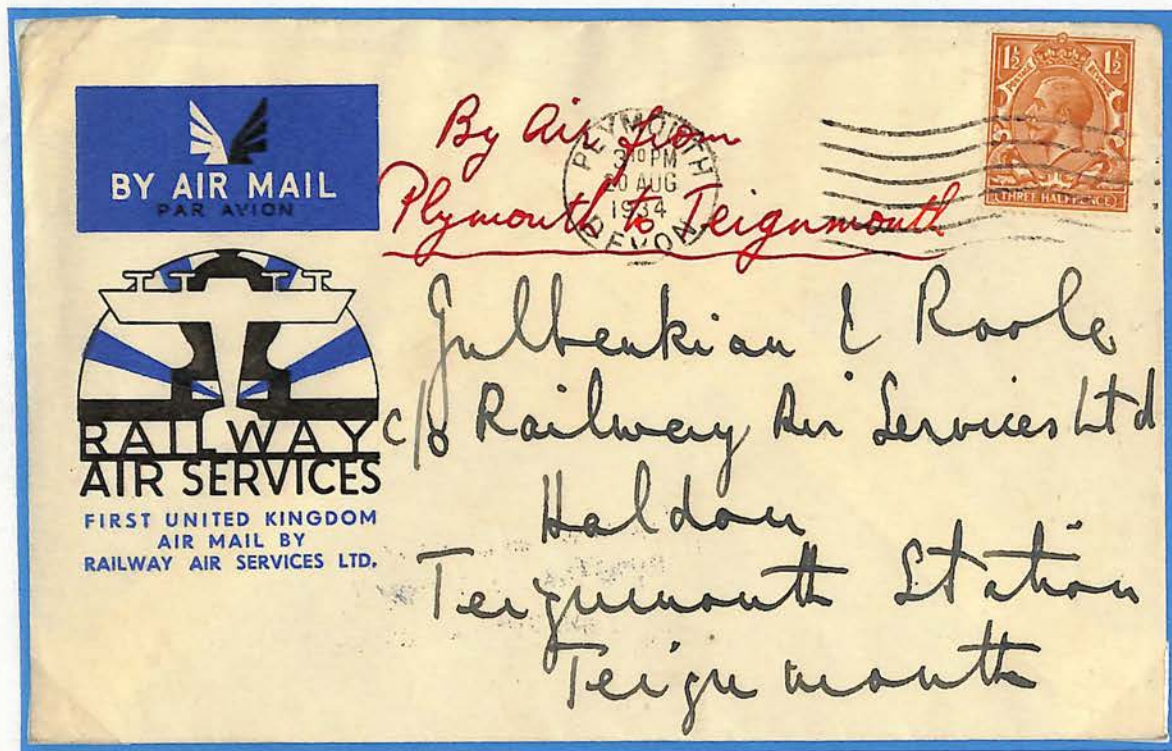 BY AIR MAIL
PAR AVION
By Air from
Plymouth to Teignmouth
PLYMOUTH
3 10 PM
20 AUG
1934
DEVON
1½ 1½
POSTAGE REVENUE
THREE HALFPENCE
RAILWAY
AIR SERVICES
FIRST UNITED KINGDOM
AIR MAIL BY
RAILWAY AIR SERVICES LTD.
Gulbenkian & Poole
c/o Railway Air Services Ltd
Haldon
Teignmouth Station
Teignmouth